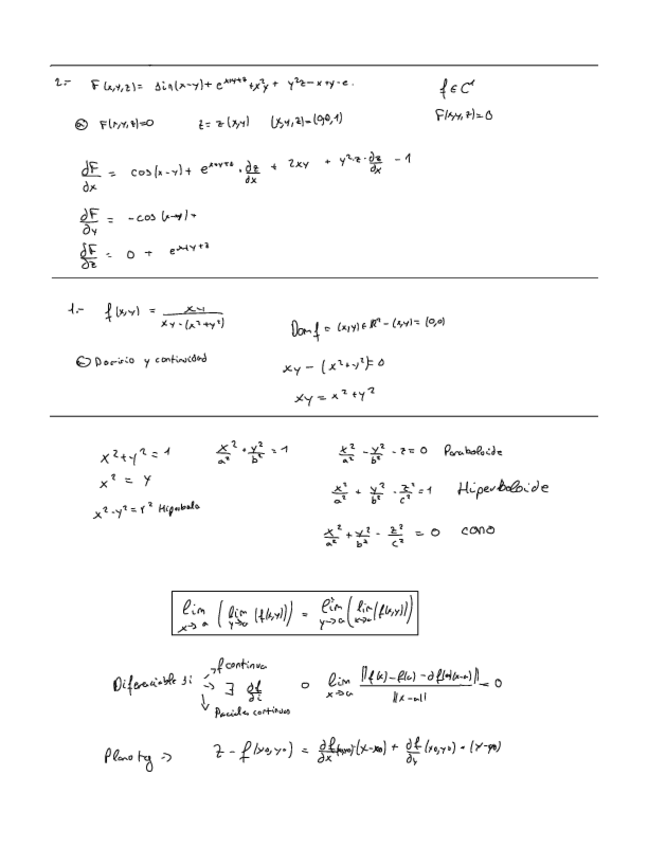 2.- F(x,y,z) = sin(x-y) + e^{x+y+z} + x²y + y²z - x + y - e. f ∈ C¹
a) F(x,y,z)=0 z = z(x,y) (x,y,z) = (0,0,1) F(x,y,z)=0
∂F/∂x = cos(x-y) + e^{x+y+z} · ∂z/∂x + 2xy + y²·z·∂z/∂x - 1
∂F/∂y = -cos(x-y) +
∂F/∂z = 0 + e^{x+y+z}
1.- f(x,y) = xy / (xy-(x²+y²)) Dom f = (x,y) ∈ - (x,y) = (0,0)
Dominio y continuidad xy - (x²+y²) = 0
xy = x² + y²
x² + y² = 1 x²/a² + y²/b² = 1 x²/a² - y²/b² - z = 0 Paraboloide
x² = y x²/a² + y²/b² - z²/c² = 1 Hiperboloide
x² - y² = r² Hiperbola
x²/a² + y²/b² - z²/c² = 0 cono
lim x→a ( lim y→a (f(x,y)) ) = lim y→a ( lim x→a (f(x,y)) )
Diferenciable si → f continua
→ ∃ ∂f/∂i o lim x→a ||f(x) - f(a) - ∂f(a)(x-a)|| / ||x-a|| = 0
→ Parciales continuas
Plano tg → z - f(x₀,y₀) = ∂f/∂x (x₀,y₀)·(x-x₀) + ∂f/∂y (x₀,y₀) · (y-y₀)